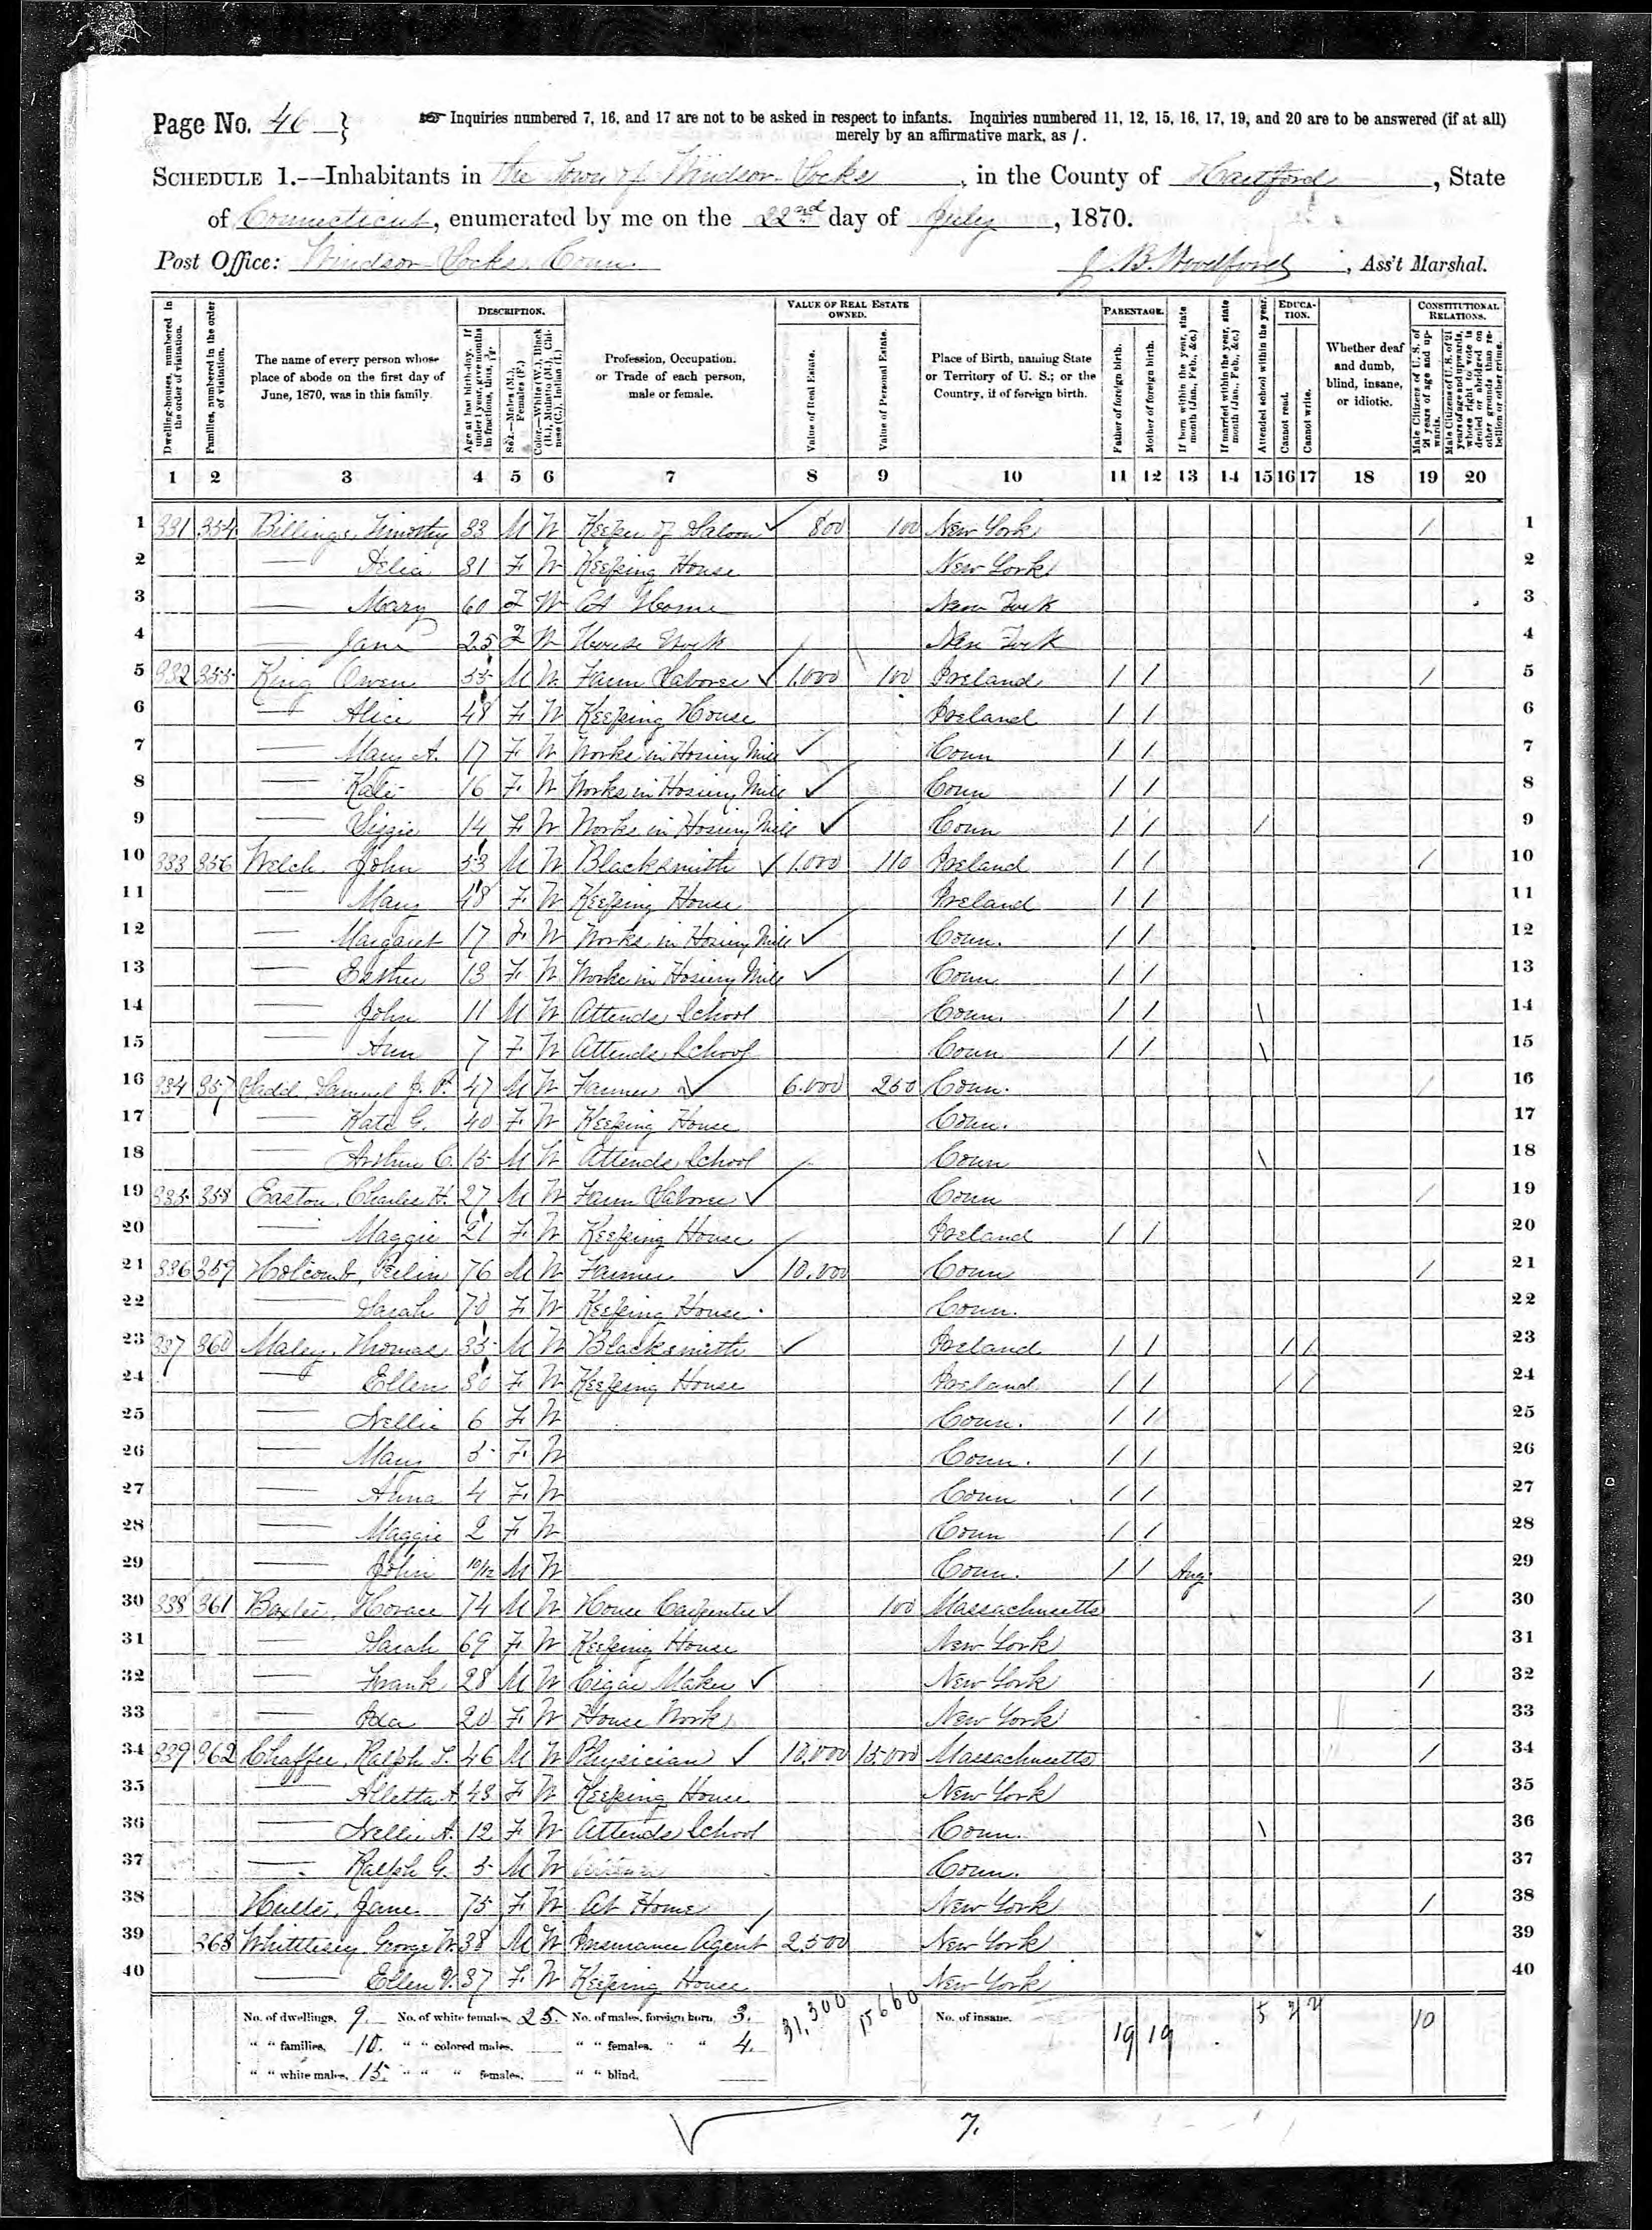 Page No. 46 }
Inquiries numbered 7, 16, and 17 are not to be asked in respect to infants. Inquiries numbered 11, 12, 15, 16, 17, 19, and 20 are to be answered (if at all)
merely by an affirmative mark, as /.
SCHEDULE 1.—Inhabitants in the Town of Windsor Locks, in the County of Hartford, State
of Connecticut, enumerated by me on the 22nd day of July, 1870.
Post Office: Windsor Locks Conn. J. B. , Ass't Marshal.
Dwelling-houses, numbered in the order of visitation.
Families, numbered in the order of visitation.
The name of every person whose place of abode on the first day of June, 1870, was in this family.
DESCRIPTION.
Age at last birth-day. If under 1 year, give months in fractions, thus, 3/12.
Sex.—Males (M.), Females (F.)
Color.—White (W.), Black (B.), Mulatto (M.), Chinese (C.), Indian (I.)
Profession, Occupation, or Trade of each person, male or female.
VALUE OF REAL ESTATE OWNED.
Value of Real Estate.
Value of Personal Estate.
Place of Birth, naming State or Territory of U. S.; or the Country, if of foreign birth.
PARENTAGE.
Father of foreign birth.
Mother of foreign birth.
If born within the year, state month (Jan., Feb., &c.)
If married within the year, state month (Jan., Feb., &c.)
Attended school within the year.
EDUCATION.
Cannot read.
Cannot write.
Whether deaf and dumb, blind, insane, or idiotic.
CONSTITUTIONAL RELATIONS.
Male Citizens of U. S. of 21 years of age and upwards.
Male Citizens of U. S. of 21 years of age and upwards, whose right to vote is denied or abridged on other grounds than rebellion or other crime.
1 2 3 4 5 6 7 8 9 10 11 12 13 14 15 16 17 18 19 20
1 331 354 Billings, Timothy 33 M W Keeper of Saloon ✓ 800 100 New York / 1
2 — Delia 31 F W Keeping House New York 2
3 — Mary 60 F W At Home New York 3
4 — Jane 25 F W House Work New York 4
5 332 355 King Owen 55 M W Farm Laborer ✓ 1.000 100 Ireland / / / 5
6 — Alice 48 F W Keeping House Ireland / / 6
7 — Mary A. 17 F W Works in Hosiery Mill ✓ Conn / / 7
8 — Kate 16 F W Works in Hosiery Mill ✓ Conn / / 8
9 — Lizzie 14 F W Works in Hosiery Mill ✓ Conn / / / 9
10 333 356 Welch John 53 M W Blacksmith ✓ 1.000 110 Ireland / / / 10
11 — Mary 48 F W Keeping House Ireland / / 11
12 — Margaret 17 F W Works in Hosiery Mill ✓ Conn. / / 12
13 — Esther 13 F W Works in Hosiery Mill ✓ Conn / / 13
14 — John 11 M W Attends School Conn. / / \ 14
15 — Ann 7 F W Attends School Conn / / \ 15
16 334 357 Ladd, Samuel J. P. 47 M W Farmer ✓ 6.000 250 Conn. / 16
17 — Kate G. 40 F W Keeping House Conn. 17
18 — Arthur C. 15 M W Attends School Conn \ 18
19 335 358 Easton, Charles H. 27 M W Farm Laborer ✓ Conn / 19
20 — Maggie 21 F W Keeping House Ireland / / 20
21 336 359 Holcomb, 76 M W Farmer ✓ 10.000 Conn / 21
22 — Sarah 70 F W Keeping House. Conn. 22
23 337 360 Maley, Thomas 35 M W Blacksmith ✓ Ireland / / / / 23
24 — Ellen 30 F W Keeping House Ireland / / / / 24
25 — Nellie 6 F W Conn. / / 25
26 — Mary 5 F W Conn. / / 26
27 — Anna 4 F W Conn / / 27
28 — Maggie 2 F W Conn / / 28
29 — John 10/12 M W Conn. / / Aug. 29
30 338 361 Baxter, Horace 74 M W House Carpenter ✓ 100 Massachusetts / 30
31 — Sarah 69 F W Keeping House New York 31
32 — Frank 28 M W Cigar Maker ✓ New York / 32
33 — Ida 20 F W House Work New York 33
34 339 362 Chaffee, Ralph S. 46 M W Physician ✓ 10.000 15.000 Massachusetts / 34
35 — Alletta A 43 F W Keeping House New York 35
36 — Nellie A. 12 F W Attends School Conn. \ 36
37 — Ralph G. 5 M W Conn. 37
38 Jane 75 F W At Home New York / 38
39 363 Whittlesey George W. 38 M W Insurance Agent 2.500 New York 39
40 — Ellen V. 37 F W Keeping House New York 40
No. of dwellings, 9. No. of white females, 25. No. of males, foreign born, 3. 31,300 15660 No. of insane. 19 19 5 2 2 10
" " families, 10. " " colored males, " " females, " " 4.
" " white males, 15. " " " females, " " blind,
7.